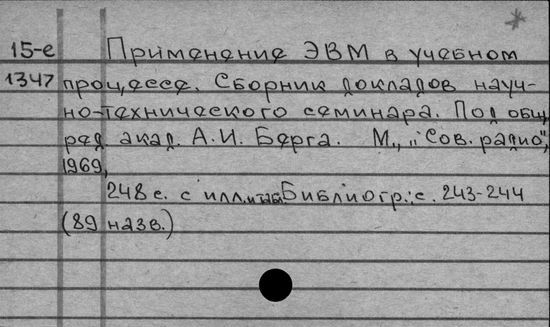 15-е Применение ЭВМ в учебном
1347 процессе. Сборник докладов науч-
но-технического семинара. Под общ.
ред. акад. А.И. Берга. М., „Сов. радио",
1969,
248 с. с илл. и табл. Библиогр.: с. 243-244
(89 назв.)